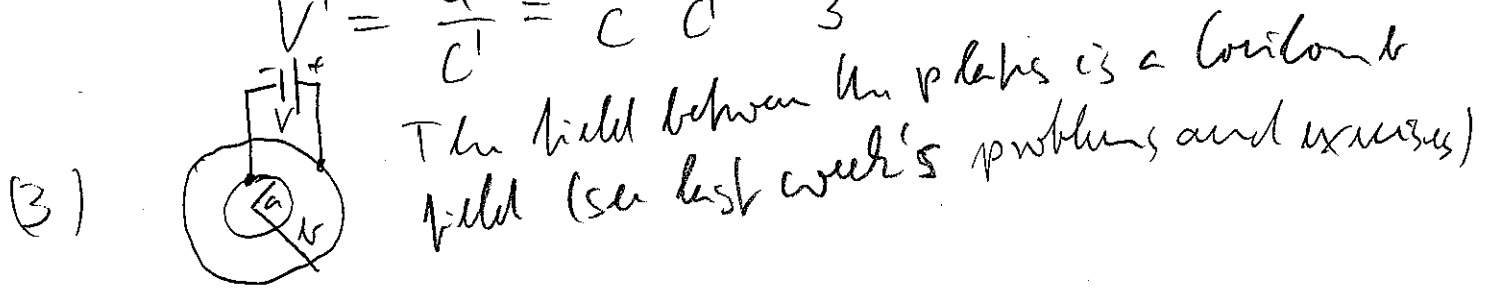 V' = = C C' 3
C'
- +
V
The field between the plates is a Coulomb
(3) a b field (see last week's problems and exercises)